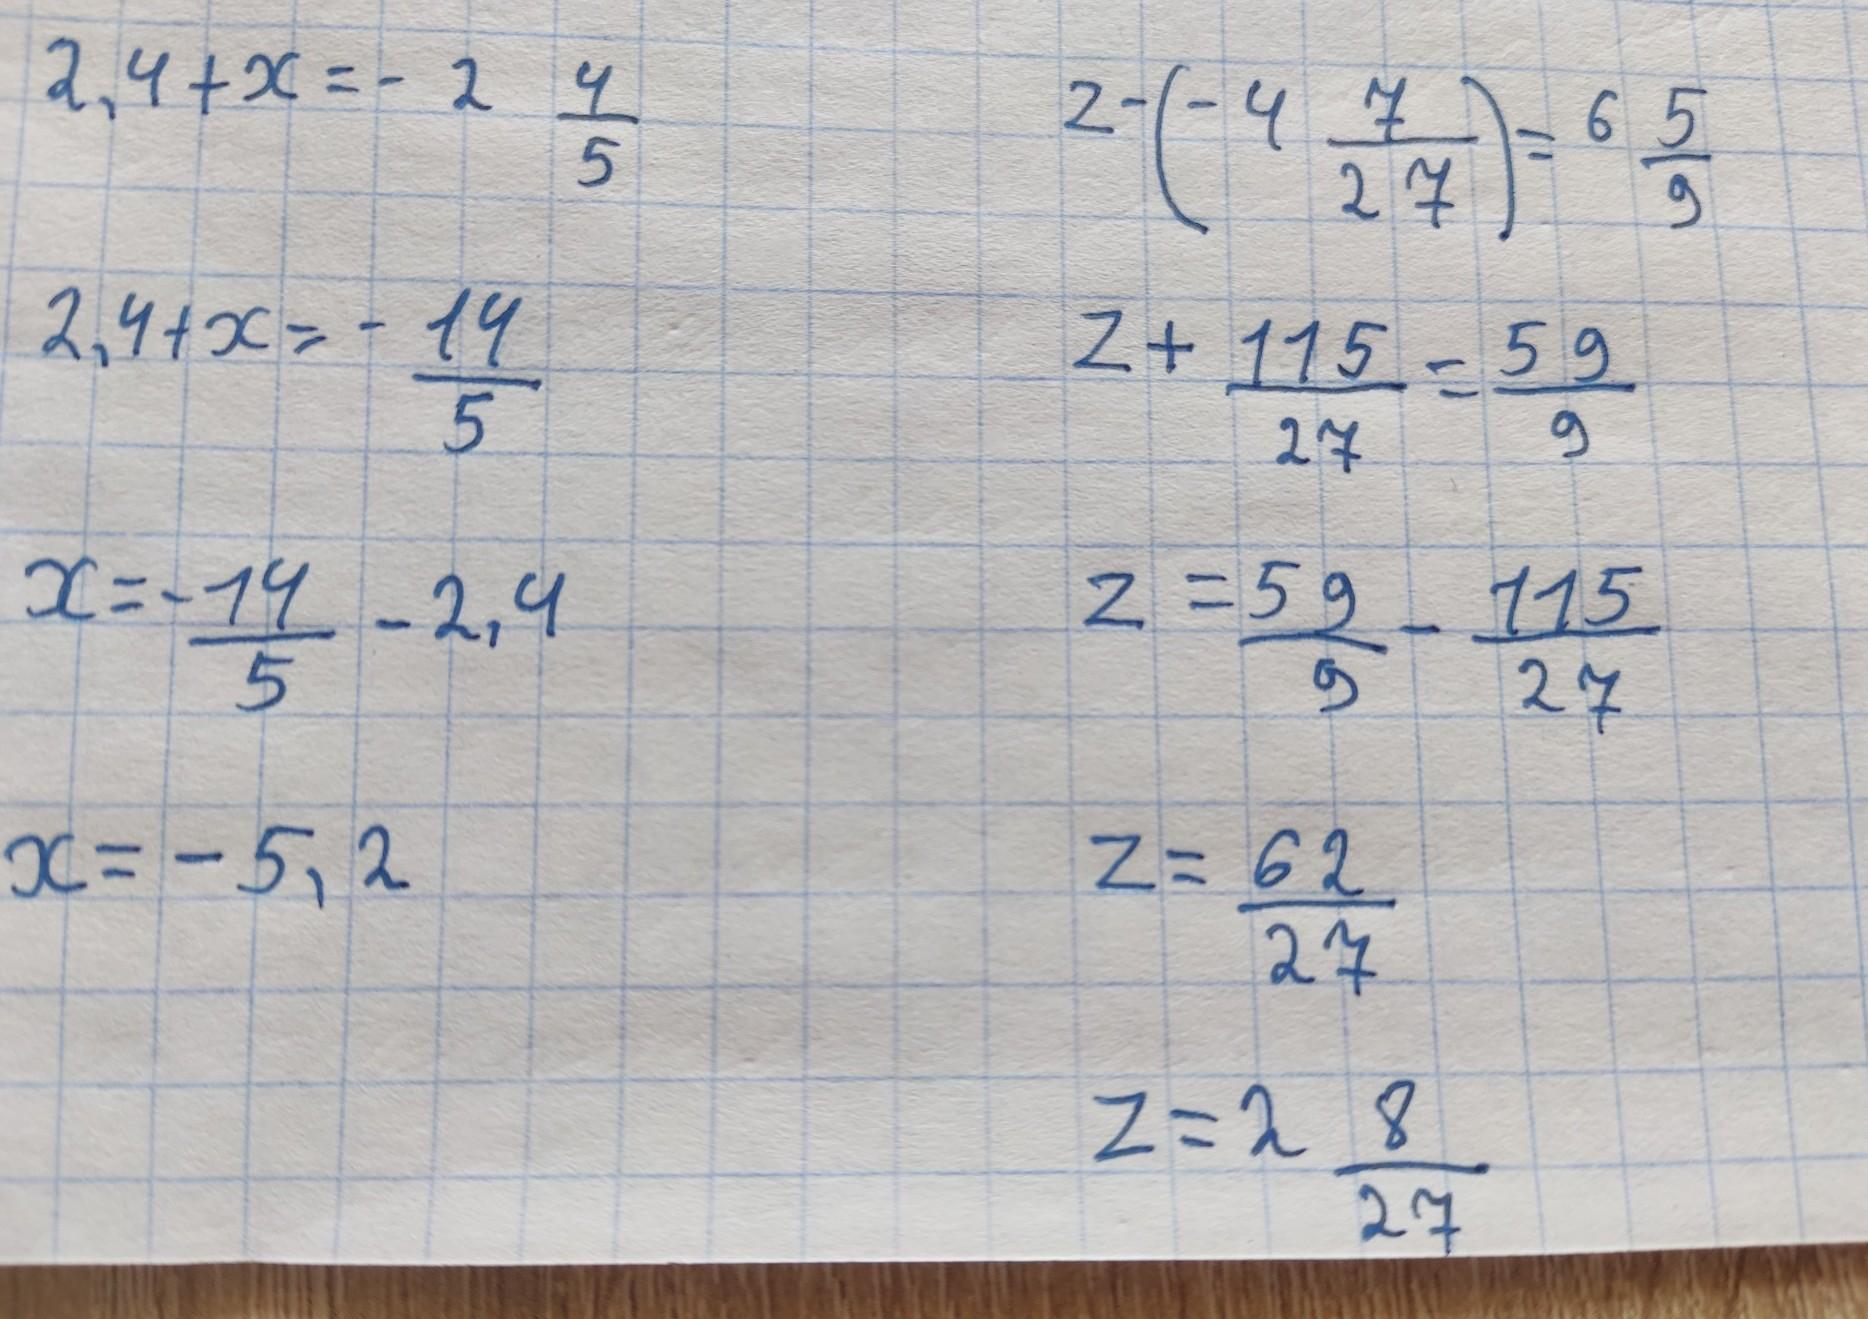 2,4+x=-2 4/5
2,4+x=-14/5
x=-14/5-2,4
x=-5,2
z-(-4 7/27)=6 5/9
z+115/27=59/9
z=59/9-115/27
z=62/27
z=2 8/27